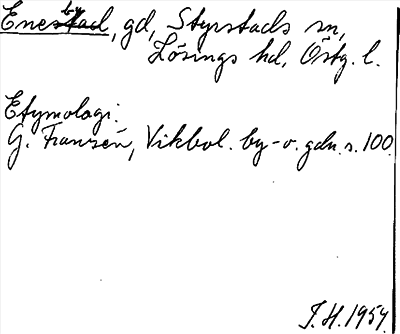 Eneby, gd, Styrstads sn,
Lösings hd, Östg. l.
Etymologi:
G. Franzén, Vikbol. by- o. gdn. s. 100.
J. H. 1954.